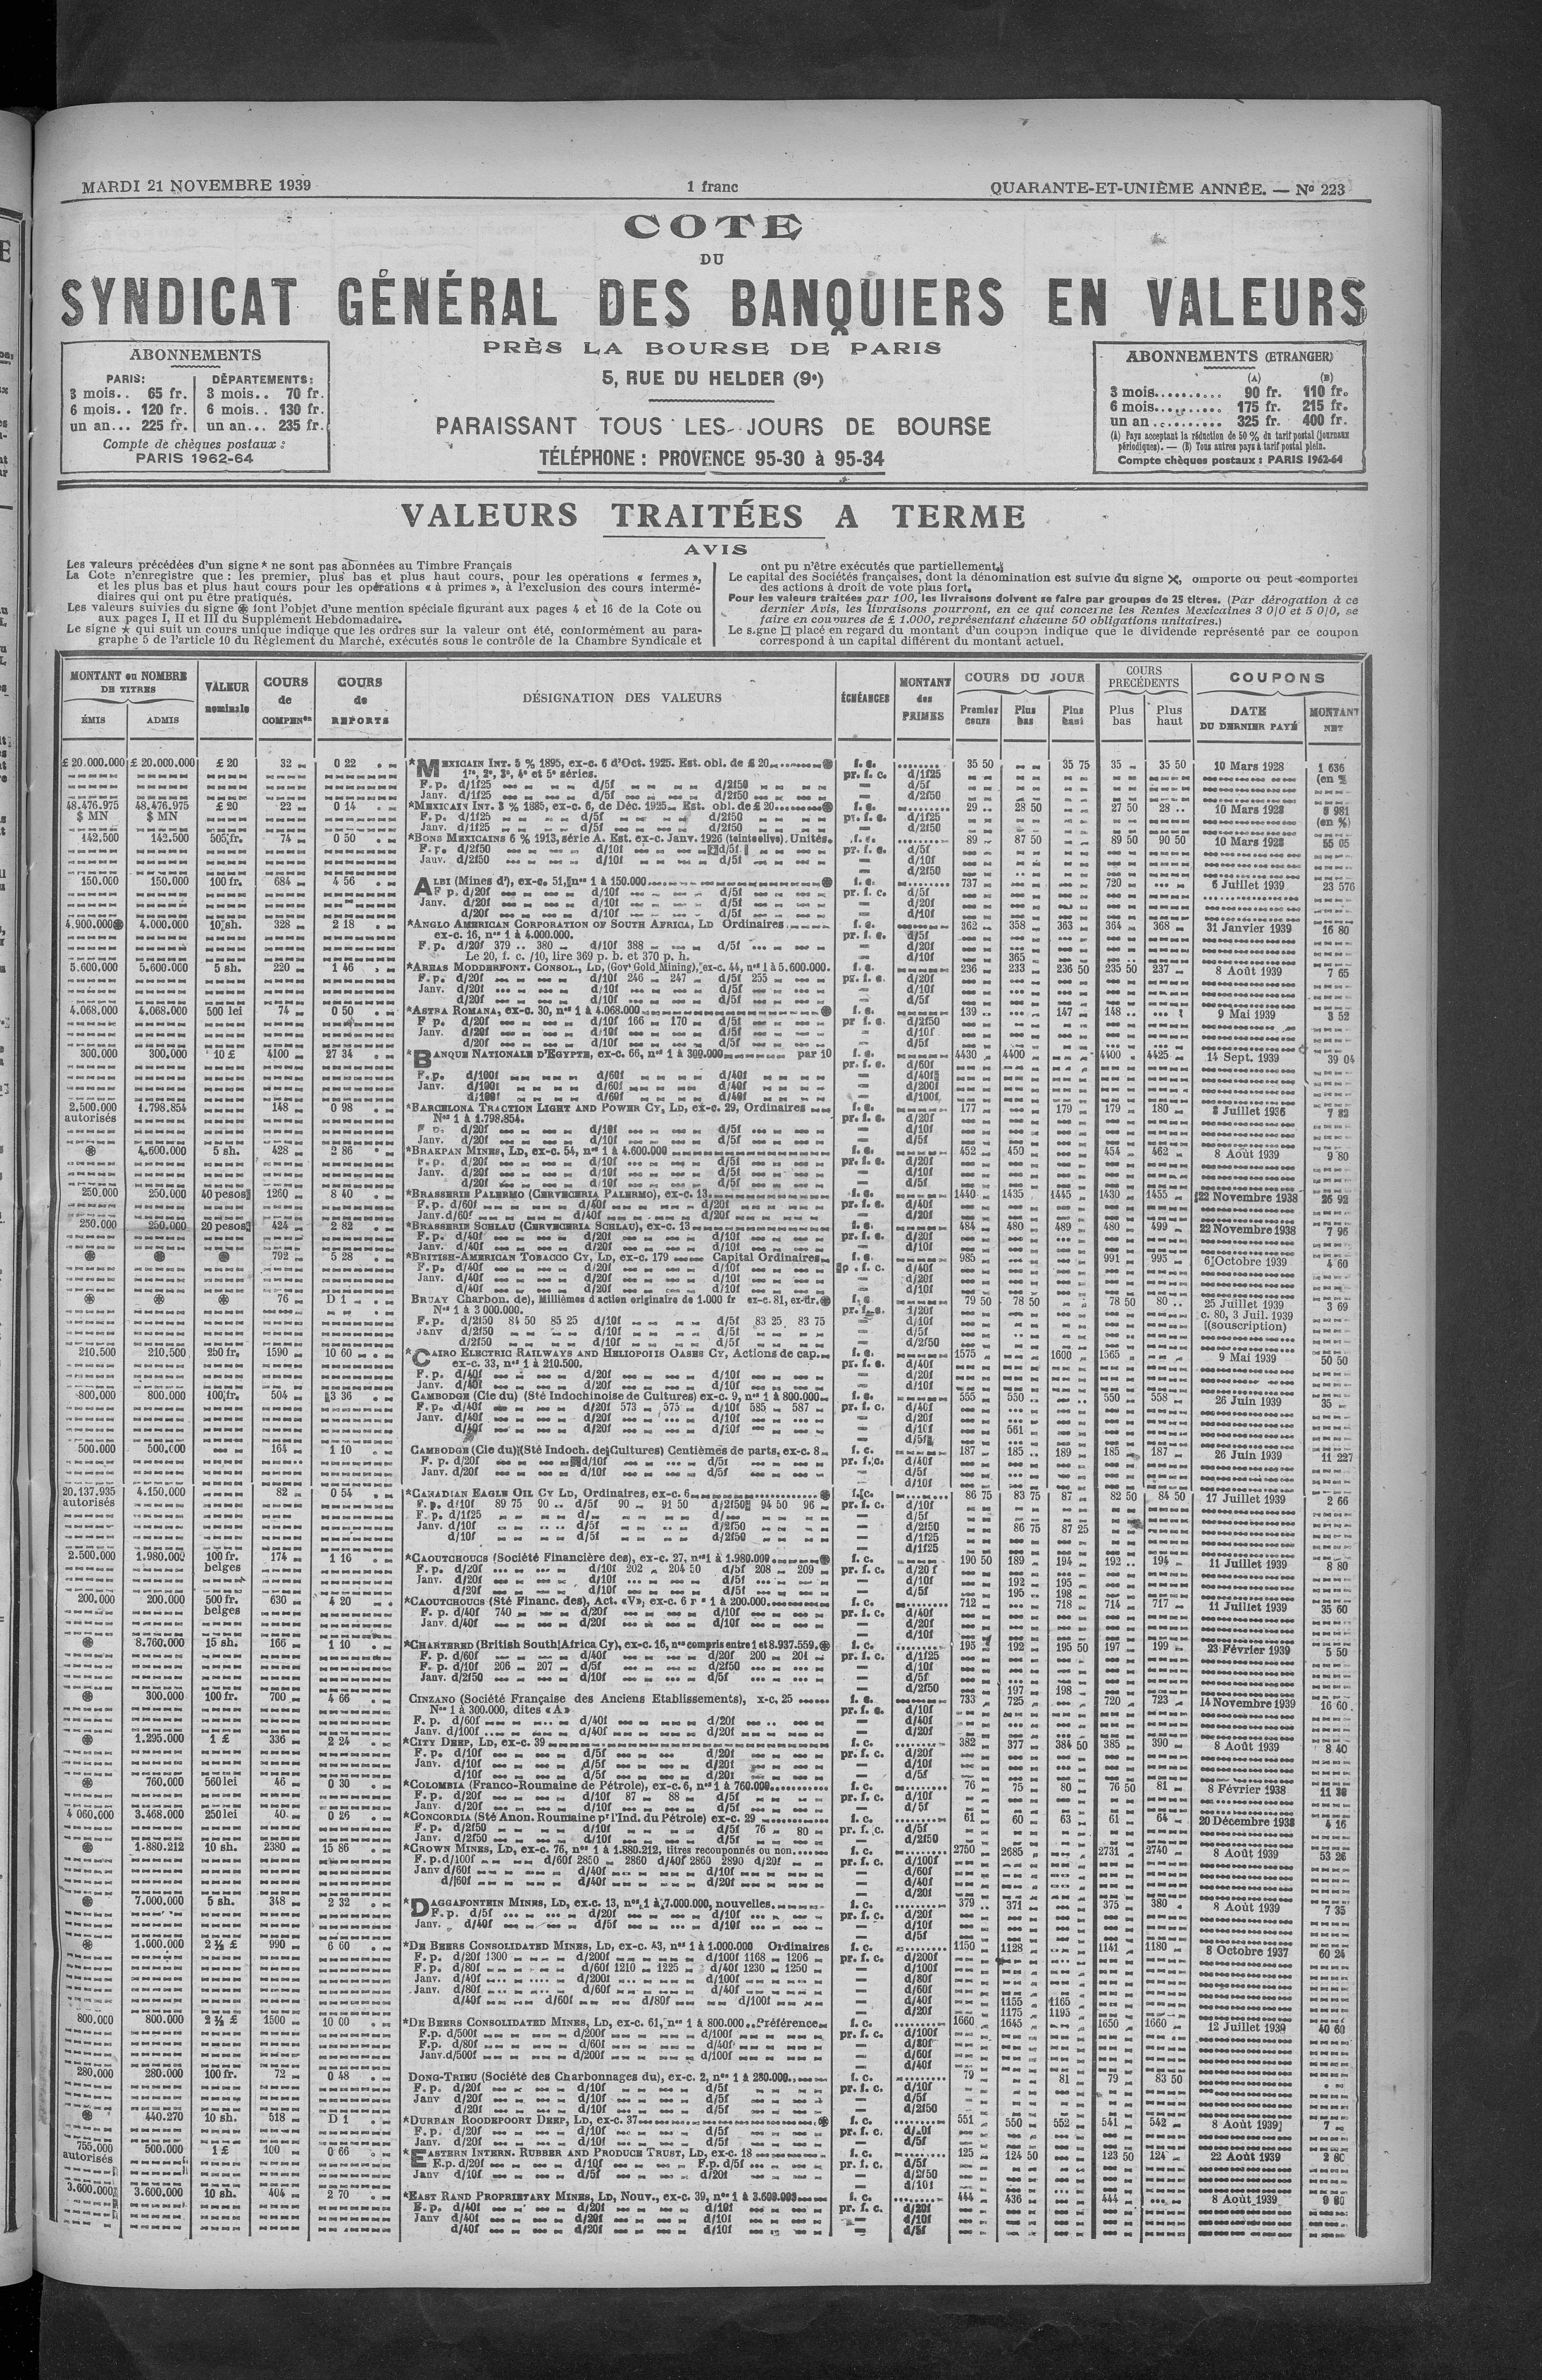 MARDI 21 NOVEMBRE 1939 1 franc QUARANTE-ET-UNIÈME ANNÉE. — No 223
COTE
DU
SYNDICAT GÉNÉRAL DES BANQUIERS EN VALEURS
PRÈS LA BOURSE DE PARIS
5, RUE DU HELDER (9e)
PARAISSANT TOUS LES JOURS DE BOURSE
TÉLÉPHONE : PROVENCE 95-30 à 95-34
ABONNEMENTS
PARIS: DÉPARTEMENTS:
3 mois.. 65 fr. 3 mois.. 70 fr.
6 mois.. 120 fr. 6 mois.. 130 fr.
un an... 225 fr. un an... 235 fr.
Compte de chèques postaux :
PARIS 1962-64
ABONNEMENTS (ETRANGER)
(A) (B)
3 mois.......... 90 fr. 110 fr.
6 mois.......... 175 fr. 215 fr.
un an.......... 325 fr. 400 fr.
(A) Pays acceptant la réduction de 50 % du tarif postal (journaux
périodiques). — (B) Tous autres pays à tarif postal plein.
Compte chèques postaux : PARIS 1962-64
VALEURS TRAITÉES A TERME
AVIS
Les valeurs précédées d'un signe * ne sont pas abonnées au Timbre Français
La Cote n'enregistre que : les premier, plus bas et plus haut cours, pour les opérations « fermes »,
et les plus bas et plus haut cours pour les opérations « à primes », à l'exclusion des cours intermé-
diaires qui ont pu être pratiqués.
Les valeurs suivies du signe ⊛ font l'objet d'une mention spéciale figurant aux pages 4 et 16 de la Cote ou
aux pages I, II et III du Supplément Hebdomadaire.
Le signe ★ qui suit un cours unique indique que les ordres sur la valeur ont été, conformément au para-
graphe 5 de l'article 10 du Règlement du Marché, exécutés sous le contrôle de la Chambre Syndicale et
ont pu n'être exécutés que partiellement.
Le capital des Sociétés françaises, dont la dénomination est suivie du signe ✕, omporte ou peut comporter
des actions à droit de vote plus fort.
Pour les valeurs traitées par 100, les livraisons doivent se faire par groupes de 25 titres. (Par dérogation à ce
dernier Avis, les livraisons pourront, en ce qui concerne les Rentes Mexicaines 3 0/0 et 5 0/0, se
faire en coupures de £ 1.000, représentant chacune 50 obligations unitaires.)
Le signe □ placé en regard du montant d'un coupon indique que le dividende représenté par ce coupon
correspond à un capital différent du montant actuel.
MONTANT ou NOMBRE DE TITRES ÉMIS ADMIS VALEUR nominale COURS de COMPENon COURS de REPORTS DÉSIGNATION DES VALEURS ÉCHÉANCES MONTANT des PRIMES COURS DU JOUR Premier cours Plus bas Plus haut COURS PRÉCÉDENTS Plus bas Plus haut COUPONS DATE DU DERNIER PAYÉ MONTANT NET
£ 20.000.000 £ 20.000.000 £ 20 32 0 22 *MEXICAIN INT. 5 % 1895, ex-c. 6 d'Oct. 1925. Est. obl. de £ 20 f. c. 35 50 35 75 35 35 50 10 Mars 1928 1 636
1re, 2e, 3e, 4e et 5e séries. pr. f. c. d/1f25 (en %)
F. p. d/1f25 d/5f d/2f50 d/5f
Janv. d/1f25 d/5f d/2f50 d/2f50
48.476.975 48.476.975 £ 20 22 0 14 *MEXICAIN INT. 3 % 1885, ex-c. 6, de Déc. 1925. Est. obl. de £ 20 f. c. 29 28 50 27 50 28 10 Mars 1928 981
$ MN $ MN F. p. d/1f25 d/5f d/2f50 pr. f. c. d/1f25 (en %)
Janv. d/1f25 d/5f d/2f50 d/2f50
142.500 142.500 505 fr. 74 0 50 *BONS MEXICAINS 6 % 1913, série A. Est. ex-c. Janv. 1926 (teinte olive). Unités. f. c. 89 87 50 89 50 90 50 10 Mars 1928 55 05
F. p. d/2f50 d/10f d/5f pr. f. c. d/5f
Janv. d/2f50 d/10f d/5f d/10f
d/2f50
150.000 150.000 100 fr. 684 4 56 ALBI (Mines d'), ex-c. 51, nos 1 à 150.000 f. c. 737 720 6 Juillet 1939 23 576
F p. d/20f d/10f d/5f pr. f. c. d/5f
Janv. d/20f d/10f d/5f d/20f
d/20f d/10f d/5f d/10f
4.900.000 4.000.000 10 sh. 328 2 18 *ANGLO AMERICAN CORPORATION OF SOUTH AFRICA, LD Ordinaires f. c. 362 358 363 364 368 31 Janvier 1939 16 80
ex-c. 16, nos 1 à 4.000.000. pr. f. c. d/5f
F. p. d/20f 379 380 d/10f 388 d/5f d/20f
Le 20, f. c. /10, lire 369 p. b. et 370 p. h. d/10f 365
5.600.000 5.600.000 5 sh. 220 1 46 *AREAS MODDERFONT. CONSOL., LD, (Govt Gold Mining), ex-c. 44, nos 1 à 5.600.000. f. c. 236 233 236 50 235 50 237 8 Août 1939 7 65
F. p. d/20f d/10f 246 247 d/5f 255 pr. f. c. d/20f
Janv. d/20f d/10f d/5f d/10f
d/20f d/10f d/5f d/5f
4.068.000 4.068.000 500 lei 74 0 50 *ASTRA ROMANA, ex-c. 30, nos 1 à 4.068.000 f. c. 139 147 148 9 Mai 1939 3 52
F p. d/20f d/10f 166 170 d/5f pr f. c. d/2f50
Janv. d/20f d/10f d/5f d/10f
d/20f d/10f d/5f d/5f
300.000 300.000 10 £ 4100 27 34 *BANQUE NATIONALE D'EGYPTE, ex-c. 66, nos 1 à 300.000 par 10 f. c. 4430 4400 4400 4425 14 Sept. 1939 39 04
pr. f. c. d/60f
F. p. d/100f d/60f d/40f d/40f
Janv. d/100f d/60f d/40f d/200f
d/100f d/60f d/40f d/100f
2.500.000 1.798.854 148 0 98 *BARCELONA TRACTION LIGHT AND POWER CY, LD, ex-c. 29, Ordinaires f. c. 177 179 179 180 8 Juillet 1936 7 82
autorisés Nos 1 à 1.798.854. pr. f. c. d/20f
d/20f d/10f d/5f d/10f
Janv. d/20f d/10f d/5f d/5f
⊛ 4.600.000 5 sh. 428 2 86 *BRAKPAN MINES, LD, ex-c. 54, nos 1 à 4.600.000 f. c. 452 450 454 462 8 Août 1939 9 80
F. p. d/20f d/10f d/5f pr. f. c. d/20f
Janv. d/20f d/10f d/5f d/10f
d/20f d/10f d/5f d/5f
250.000 250.000 40 pesos 1260 8 40 *BRASSERIE PALERMO (CERVECERIA PALERMO), ex-c. 13 f. c. 1440 1435 1445 1430 1455 22 Novembre 1938 26 92
F. p. d/60f d/40f d/20f pr. f. c. d/40f
Janv. d/60f d/40f d/20f d/20f
250.000 250.000 20 pesos 424 2 82 *BRASSERIE SCHLAU (CERVECERIA SCHLAU), ex-c. 13 f. c. 484 480 489 480 499 22 Novembre 1938 7 96
F. p. d/40f d/20f d/10f pr. f. c. d/20f
Janv. d/40f d/20f d/10f d/10f
⊛ ⊛ ⊛ 792 5 28 *BRITISH-AMERICAN TOBACCO CY, LD, ex-c. 179 Capital Ordinaires f. c. 985 991 995 6 Octobre 1939 4 60
F. p. d/40f d/20f d/10f p. f. c. d/40f
Janv. d/40f d/20f d/10f d/20f
d/40f d/20f d/10f d/10f
⊛ ⊛ ⊛ 76 D 1 BRUAY Charbon. de), Millièmes d action originaire de 1.000 fr ex-c. 81, ex-dr. ⊛ f. c. 79 50 78 50 78 50 80 25 Juillet 1939 3 69
Nos 1 à 3 000.000. pr. f. c. d/20f c. 80, 3 Juil. 1939
F. p. d/2f50 84 50 85 25 d/10f d/5f 83 25 83 75 d/10f (souscription)
Janv d/2f50 d/10f d/5f d/5f
d/2f50 d/10f d/5f d/2f50
210.500 210.500 250 fr. 1590 10 60 *CAIRO ELECTRIC RAILWAYS AND HELIOPOLIS OASES CY, Actions de cap. f. c. 1575 1600 1565 9 Mai 1939 50 50
ex-c. 33, nos 1 à 210.500. pr. f. c. d/40f
F. p. d/40f d/20f d/10f d/20f
Janv. d/40f d/20f d/10f d/10f
800.000 800.000 100 fr. 504 3 36 CAMBODGE (Cie du) (Sté Indochinoise de Cultures) ex-c. 9, nos 1 à 800.000 f. c. 555 550 550 558 26 Juin 1939 35
F. p. d/40f d/20f 573 575 d/10f 585 587 pr. f. c. d/40f
Janv. d/40f d/20f d/10f d/20f
d/40f d/20f d/10f d/10f 561
d/5f
500.000 500.000 164 1 10 CAMBODGE (Cie du) (Sté Indoch. de Cultures) Centièmes de parts, ex-c. 8 f. c. 187 185 189 185 187 26 Juin 1939 11 227
F. p. d/20f d/10f d/5f pr. f. c. d/40f
Janv. d/20f d/10f d/5f d/5f
d/10f
20.137.935 4.150.000 82 0 54 *CANADIAN EAGLE OIL CY LD, Ordinaires, ex-c. 6 ⊛ f. c. 86 75 83 75 87 82 50 84 50 17 Juillet 1939 2 66
autorisés F. p. d/10f 89 75 90 d/5f 90 91 50 d/2f50 94 50 96 pr. f. c. d/10f
F. p. d/1f25 d/ d/ d/5f
Janv. d/10f d/5f d/2f50 d/2f50 86 75 87 25
d/10f d/5f d/2f50 d/1f25
d/1f25
2.500.000 1.980.000 100 fr. 174 1 16 *CAOUTCHOUCS (Société Financière des), ex-c. 27, nos 1 à 1.980.000 ⊛ f. c. 190 50 189 194 192 194 11 Juillet 1939 8 80
belges F. p. d/20f d/10f 202 204 50 d/5f 208 209 pr. f. c. d/20 f
Janv. d/20f d/10f d/5f d/10f 192 195
d/20f d/10f d/5f d/5f 195 198
200.000 200.000 500 fr. 630 4 20 *CAOUTCHOUCS (Sté Financ. des), Act. «V», ex-c. 6 1 à 200.000 f. c. 712 718 714 717 11 Juillet 1939 35 60
belges F. p. d/40f 740 d/20f d/10f pr. f. c. d/40f
Janv. d/40f d/20f d/10f d/20f
d/10f
⊛ 8.760.000 15 sh. 166 1 10 *CHARTERED (British South Africa Cy), ex-c. 16, nos compris entre 1 et 8.937.559. ⊛ f. c. 195 192 195 50 197 199 23 Février 1939 5 50
F. p. d/60f d/40f d/20f 200 201 pr. f. c. d/1f25
F. p. d/10f 206 207 d/5f d/2f50 d/10f
Janv. d/2f50 d/10f d/5f d/5f
d/2f50 197 198
⊛ 300.000 100 fr. 700 4 66 CINZANO (Société Française des Anciens Etablissements), x-c. 25 f. c. 733 725 720 723 14 Novembre 1939 16 60
Nos 1 à 300.000, dites «A» pr. f. c. d/10f
F. p. d/60f d/40f d/20f d/40f
Janv. d/100f d/40f d/20f d/20f
⊛ 1.295.000 1 £ 336 2 24 *CITY DEEP, LD, ex-c. 39 f. c. 382 377 384 50 385 390 8 Août 1939 8 40
F. p. d/10f d/5f d/20f pr. f. c. d/20f
Janv. d/10f d/5f d/20f d/10f
d/10f d/5f d/20f d/5f
⊛ 760.000 560 lei 46 0 30 *COLOMBIA (Franco-Roumaine de Pétrole), ex-c. 6, nos 1 à 760.000 f. c. 76 75 80 76 50 81 8 Février 1938 11 38
F. p. d/20f d/10f 87 88 d/5f pr. f. c. d/10f
Janv. d/20f d/10f d/5f d/5f
4 060.000 3.468.000 250 lei 40 0 26 *CONCORDIA (Sté Anon. Roumaine pr l'Ind. du Pétrole) ex-c. 29 f. c. 61 60 63 61 64 20 Décembre 1938 4 16
F. p. d/2f50 d/10f d/5f 76 80 pr. f. c. d/5f
Janv. d/2f50 d/10f d/5f d/2f50
⊛ 1.880.212 10 sh. 2380 15 86 *CROWN MINES, LD, ex-c. 76, nos 1 à 1.880.212, titres recouponnés ou non f. c. 2750 2685 2731 2740 8 Août 1939 53 26
F. p. d/100f d/60f 2850 2860 d/40f 2860 2890 d/20f pr. f. c. d/100f
Janv d/60f d/40f d/10f d/60f
d/60f d/40f d/20f d/40f
d/20f
⊛ 7.000.000 5 sh. 348 2 32 *DAGGAFONTEIN MINES, LD, ex-c. 13, nos 1 à 7.000.000, nouvelles f. c. 379 371 375 380 8 Août 1939 7 35
F. p. d/5f d/20f d/10f pr. f. c. d/20f
Janv. d/40f d/5f d/10f d/10f
d/5f
⊛ 1.000.000 2 ½ £ 990 6 60 *DE BEERS CONSOLIDATED MINES, LD, ex-c. 43, nos 1 à 1.000.000 Ordinaires f. c. 1150 1128 1141 1180 8 Octobre 1937 60 24
F. p. d/20f 1300 d/200f d/100f 1168 1206 pr. f. c. d/200f
F. p. d/80f d/60f 1210 1225 d/40f 1230 1250 d/100f
Janv. d/40f d/200f d/100f d/80f
Janv. d/80f d/60f d/40f d/60f
d/40f d/60f d/80f d/100f d/40f 1155 1165
d/20f 1175 1195
800.000 800.000 2 ½ £ 1500 10 00 *DE BEERS CONSOLIDATED MINES, LD, ex-c. 61, nos 1 à 800.000 Préférence f. c. 1660 1645 1650 1660 12 Juillet 1939 40 60
F.p. d/500f d/200f d/100f pr. f. c. d/100f
F.p. d/80f d/60f d/40f d/80f
Janv. d/500f d/200f d/100f d/60f
d/40f
280.000 280.000 100 fr. 72 0 48 DONG-TRIEU (Société des Charbonnages du), ex-c. 2, nos 1 à 280.000 f. c. 79 81 79 83 50
F. p. d/20f d/10f d/5f pr. f. c. d/10f
Janv d/20f d/10f d/5f d/5f
d/20f d/10f d/5f d/2f50
⊛ 440.270 10 sh. 518 D 1 *DURBAN ROODEPOORT DEEP, LD, ex-c. 37 ⊛ f. c. 551 550 552 541 542 8 Août 1939 7
F. p. d/20f d/10f d/5f pr. f. c.
Janv. d/20f d/10f d/5f d/5f
755.000 500.000 1 £ 100 0 66 *EASTERN INTERN. RUBBER AND PRODUCE TRUST, LD, ex-c. 18 f. c. 125 124 50 123 50 124 22 Août 1939 2 80
autorisés F.p. d/20f d/10f F.p. d/5f pr. f. c. d/5f
Janv d/10f d/5f d/20f d/2f50
d/10f
3.600.000 3.600.000 10 sh. 404 2 70 *EAST RAND PROPRIETARY MINES, LD, Nouv., ex-c. 39, nos 1 à 3.600.000 f. c. 444 436 444 8 Août 1939 9 80
F. p. d/40f d/20f d/10f pr. f. c. d/20f
Janv d/40f d/20f d/10f d/10f
d/40f d/20f d/10f d/5f